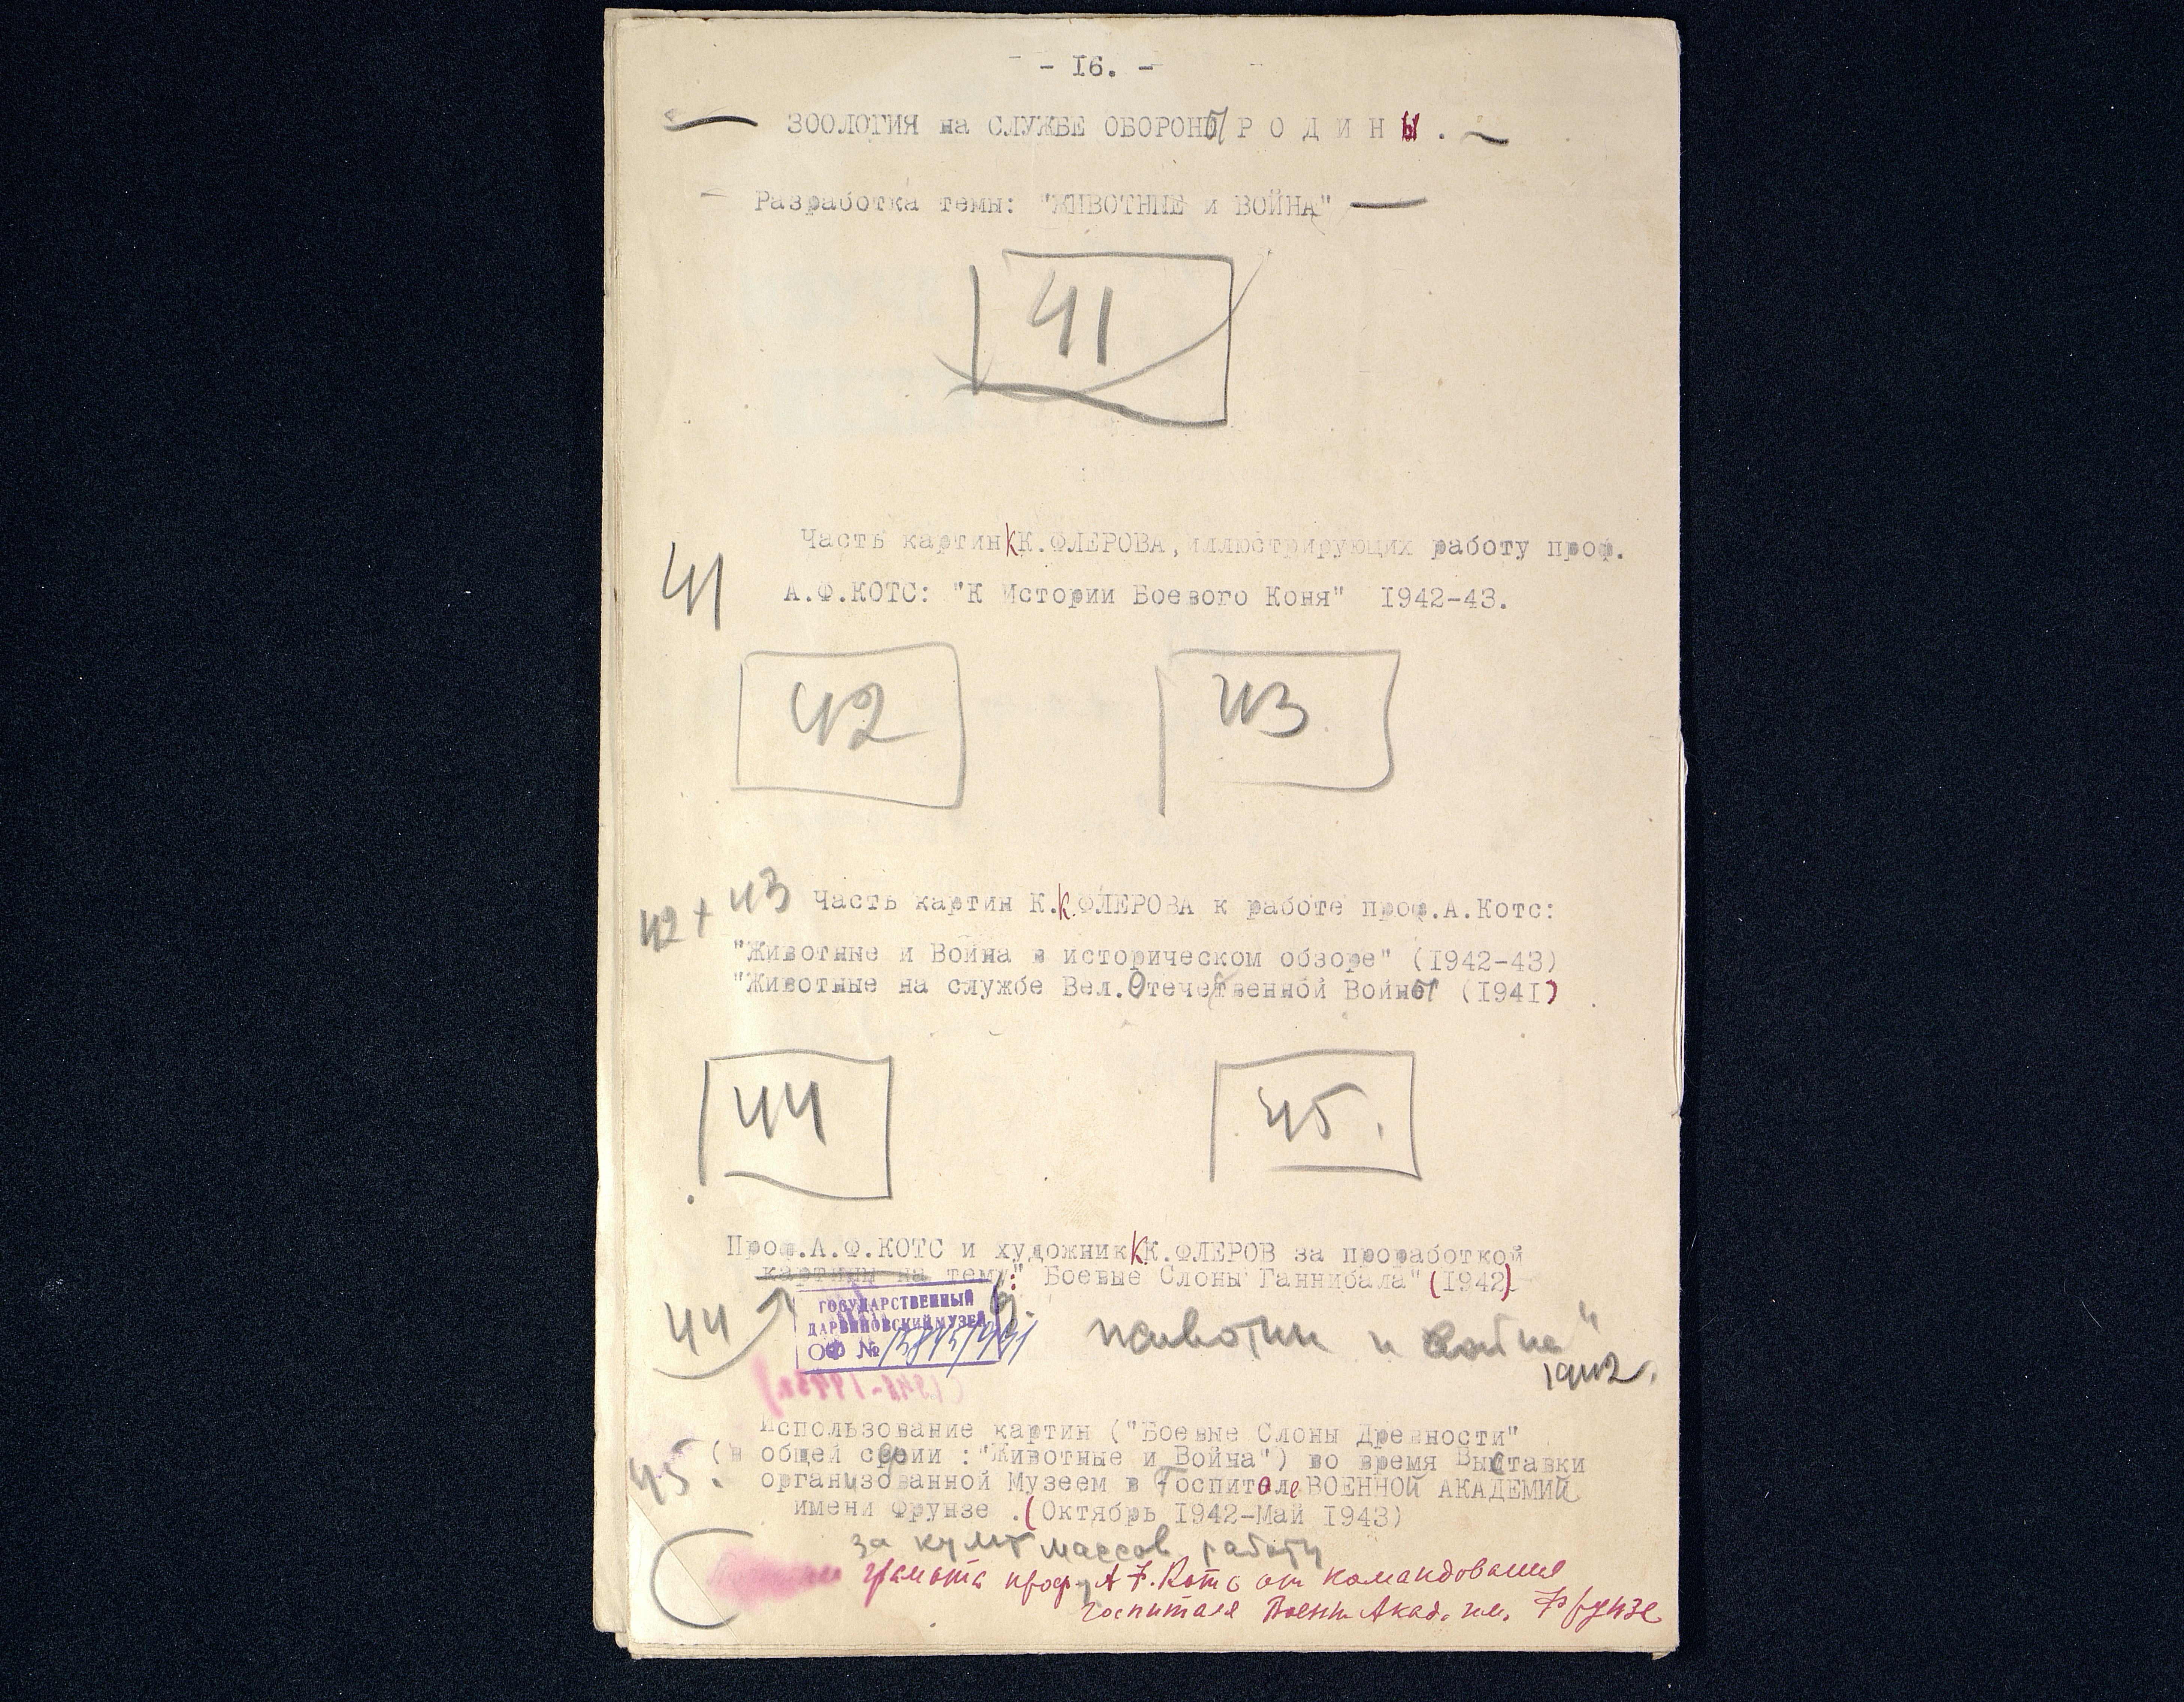 - 16. -
ЗООЛОГИЯ на СЛУЖБЕ ОБОРОНЫ Р О Д И Н Ы .
Разработка темы: "ЖИВОТНЫЕ и ВОЙНА"
41
Часть картин К.К.ФЛЕРОВА, иллюстрирующих работу проф.
41 А.Ф.КОТС: "К Истории Боевого Коня" 1942-43.
42 43
42+43 Часть картин К.К.ФЛЕРОВА к работе проф.А.Котс:
"Животные и Война в историческом обзоре" (1942-43)
"Животные на службе Вел.Отечественной Войны (1941)
44 45.
Проф.А.Ф.КОТС и художник К.К.ФЛЕРОВ за проработкой
картины на тему: "Боевые Слоны Ганнибала" (1942)
44
ГОСУДАРСТВЕННЫЙ
ДАРВИНОВСКИЙ МУЗЕЙ
ОФ №
животн и война"
1942.
Использование картин ("Боевые Слоны Древности"
45. (в общей серии :"Животные и Война") во время Выставки
организованной Музеем в Госпитале ВОЕННОЙ АКАДЕМИИ
имени Фрунзе .(Октябрь 1942-Май 1943)
за культ массов. работу
грамота проф. А.Ф.Котс от командования
госпиталя Воен. Акад. им. Фрунзе